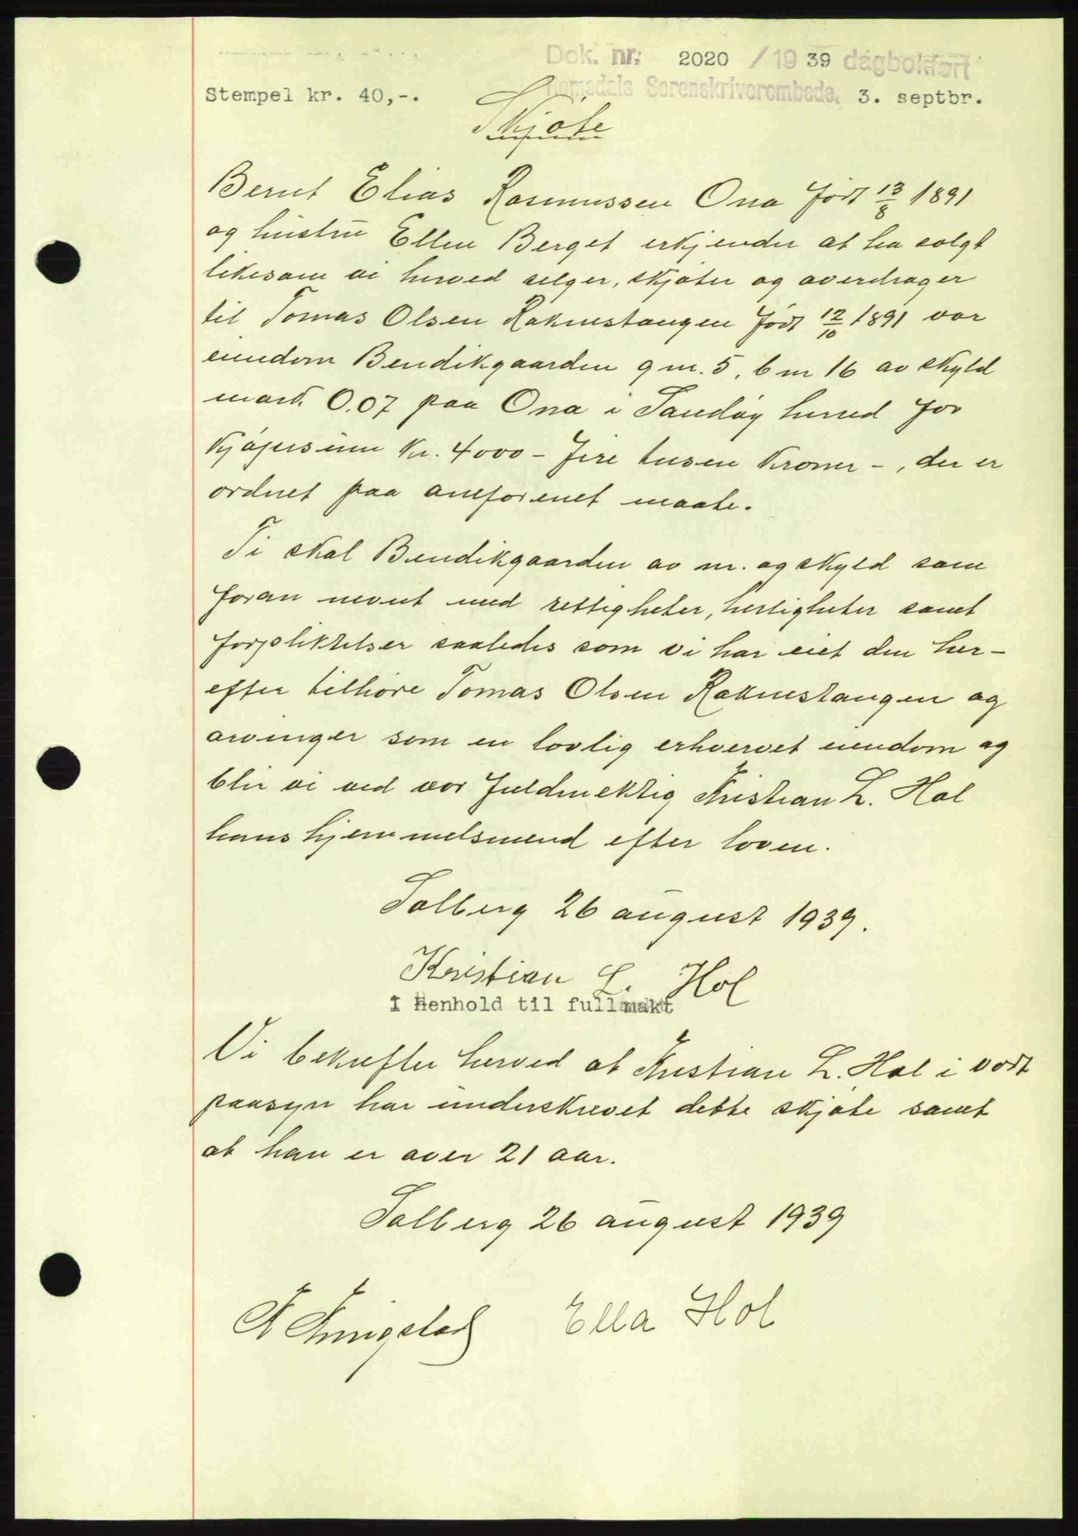 Dok. nr. 2020 / 19 39 dagbokført
Romsdals Sorenskriverembede, 3. septbr.
Stempel kr. 40,-.
Skjøte
Bernt Elias Rasmussen Ona født 13/8 1891
og hustru Ellen Berget erkjender at ha solgt
likesom vi herved selger, skjøter og overdrager
til Tomas Olsen Raknestangen født 12/10 1891 vor
eiendom Bendikgaarden g nr. 5, b nr 16 av skyld
mark 0.07 paa Ona i Sandøy herred for
kjøpesum kr. 4000 - fire tusen kroner -, der er
ordnet paa omforenet maate.
Ti skal Bendikgaarden av nr. og skyld som
foran nevnt med rettigheter, herligheter samt
forpliktelser saaledes som vi har eiet den her-
efter tilhøre Tomas Olsen Raknestangen og
arvinger som en lovlig erhvervet eiendom og
blir vi ved vor fuldmektig Kristian L. Hol
hans hjemmelsmend efter loven.
Solberg 26 august 1939.
Kristian L. Hol
I Henhold til fullmakt
Vi bekrefter herved at Kristian L. Hol i vort
paasyn har underskrevet dette skjøte samt
at han er over 21 aar.
Solberg 26 august 1939
K Kringstad Ella Hol